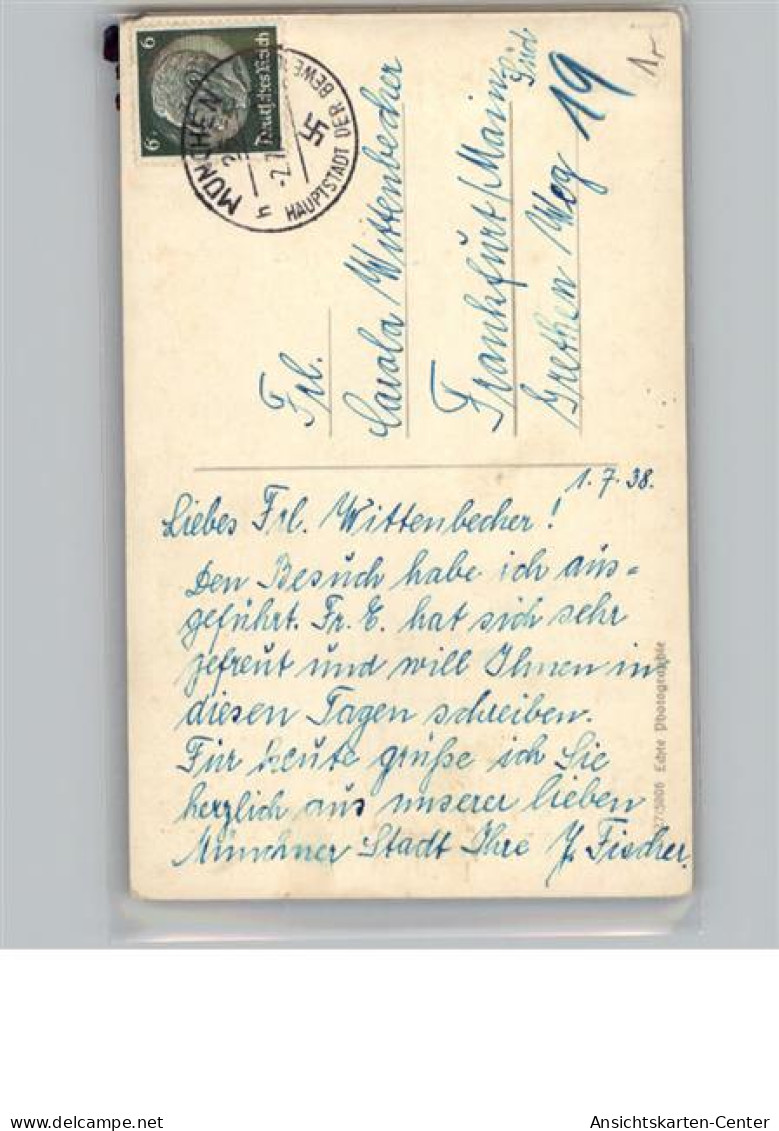 6
6
Deutsches Reich
MÜNCHEN
2.7
HAUPTSTADT DER BEWE
1,-
Frl.
Carola Wittenbecher
Frankfurt/Main
Süd
Grethen Weg 19
1.7.38.
Liebes Frl. Wittenbecher!
Den Besuch habe ich aus=
geführt. Fr. E. hat sich sehr
gefreut und will Ihnen in
diesen Tagen schreiben.
Für heute grüße ich Sie
herzlich aus unserer lieben
Münchner Stadt Ihre J. Fischer.
27/5806 Echte Photographie
Ansichtskarten-Center